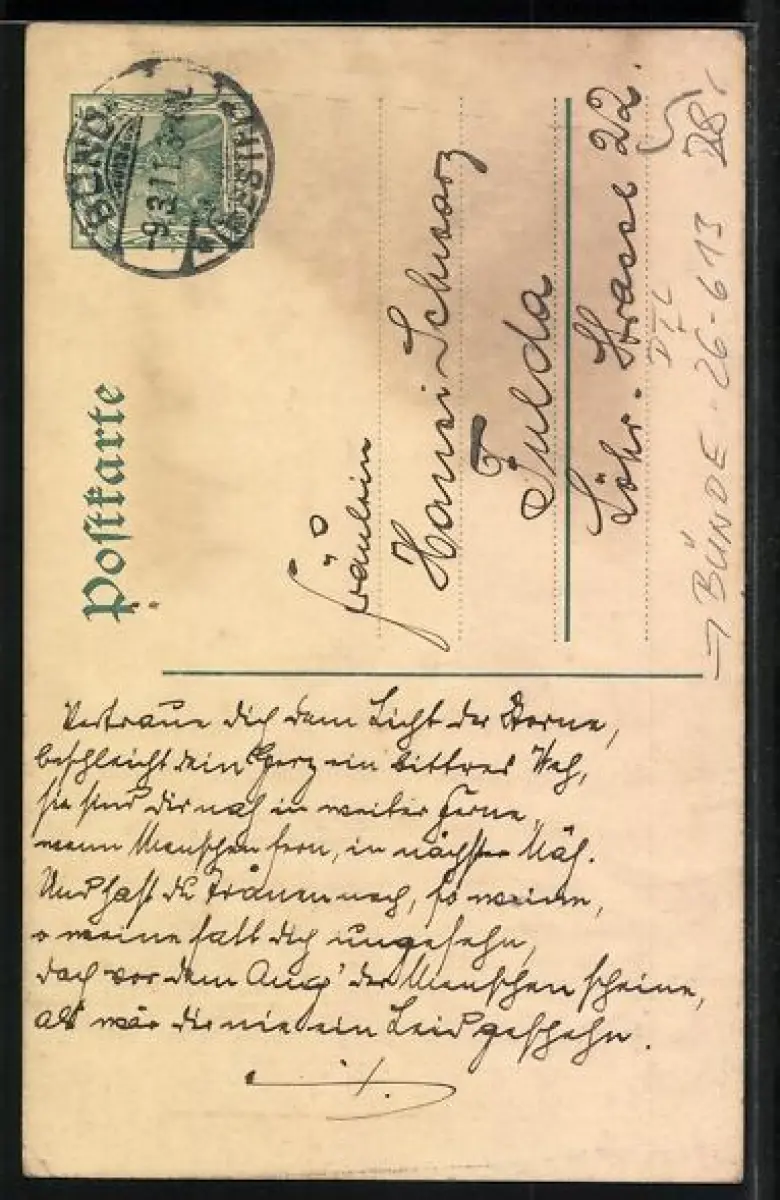 Postkarte
BÜNDE
-9.3.11.
Fräulein
Hansi Schwarz
Fulda
Löhr-Strasse 22.
→ BÜNDE-26-613
Vertraue dich dem Licht der Sterne,
beschleicht dein Herz ein bittres Weh,
sie sind dir nah in weiter Ferne,
wenn Menschen fern, in nächster Näh.
Und hast du Tränen noch, so weine,
o weine satt dich ungesehn,
doch vor dem Aug' der Menschen scheine,
als wär dir nie ein Leid geschehn.